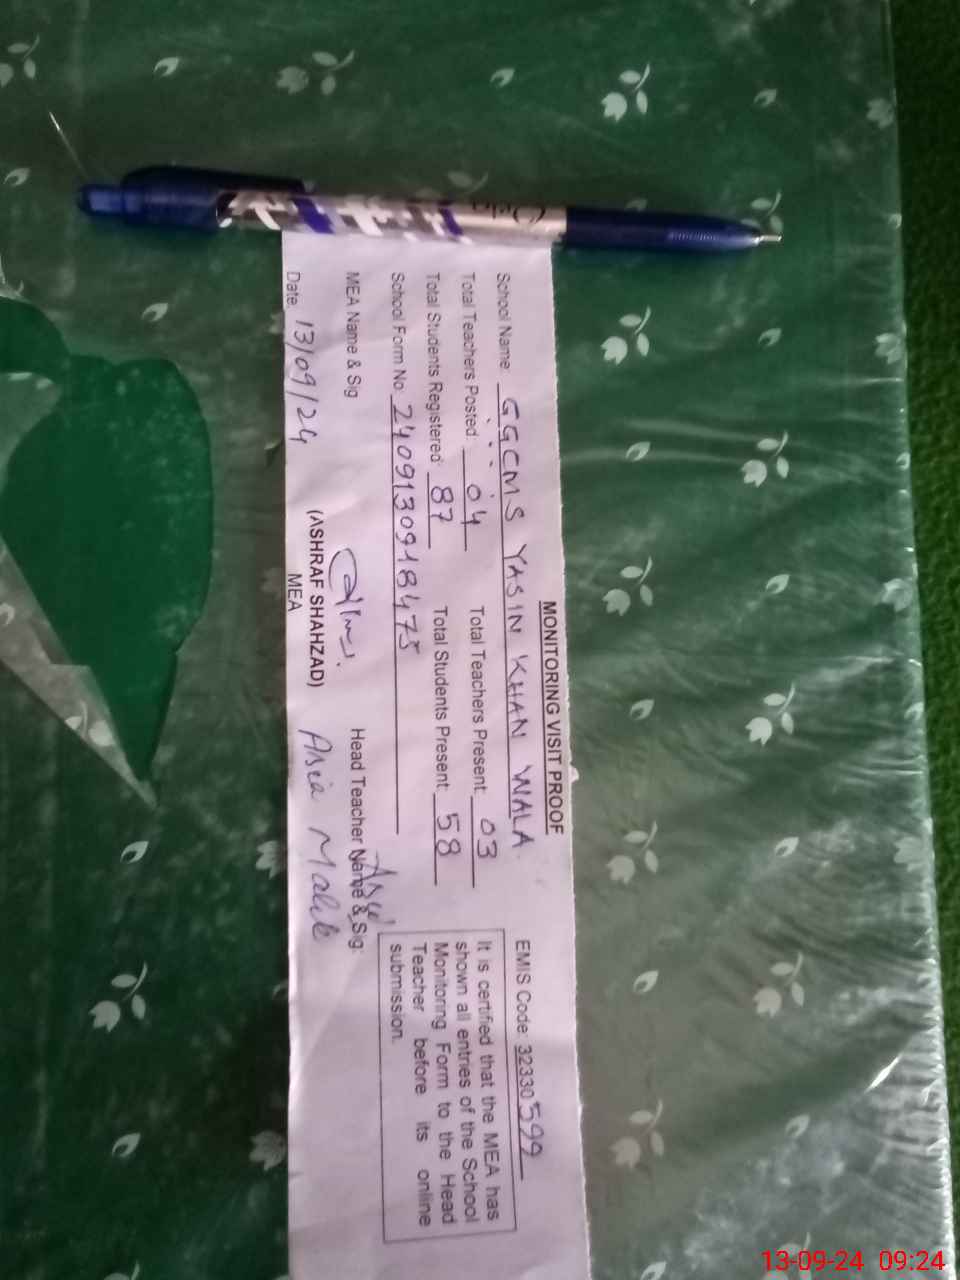 MONITORING VISIT PROOF
School Name: GGCMS YASIN KHAN WALA. EMIS Code: 32330599
Total Teachers Posted: 04 Total Teachers Present: 03
Total Students Registered: 87 Total Students Present: 58
School Form No: 2409130918475
It is certified that the MEA has
shown all entries of the School
Monitoring Form to the Head
Teacher before its online
submission.
MEA Name & Sig Head Teacher Name & Sig:
(ASHRAF SHAHZAD) Asia Malik
MEA
Date: 13/09/24
13-09-24 09:24